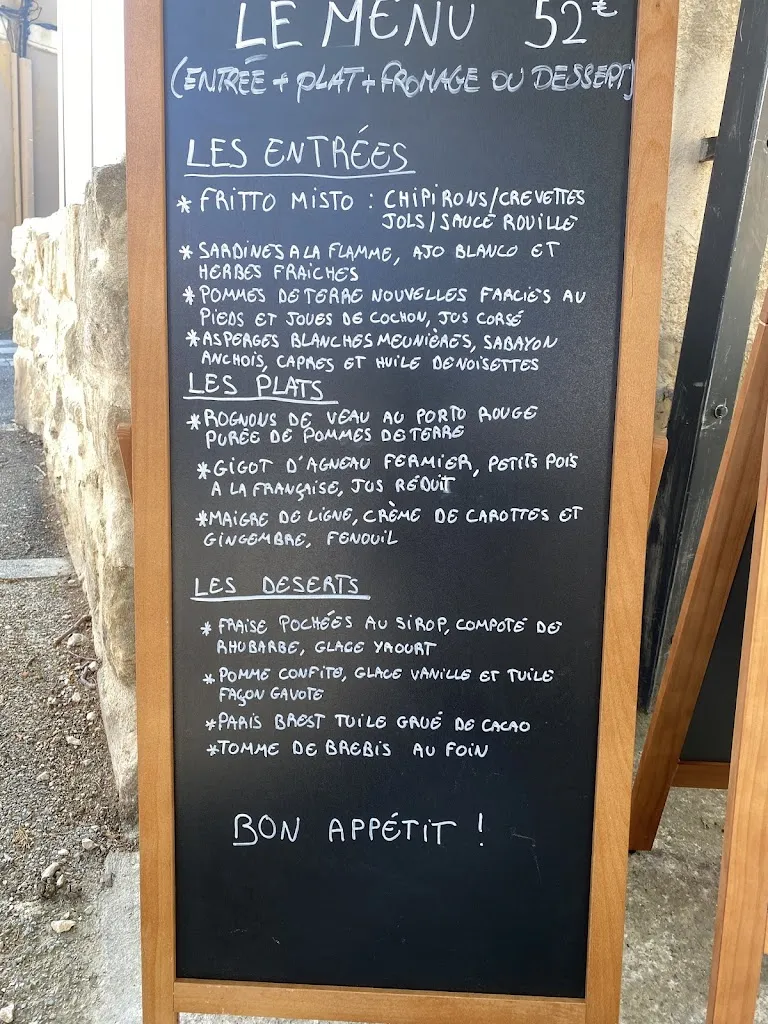 LE MENU 52€
(ENTRÉE + PLAT + FROMAGE OU DESSERT)
LES ENTRÉES
* FRITTO MISTO : CHIPIRONS/CREVETTES
JOLS/SAUCE ROUILLE
* SARDINES A LA FLAMME, AJO BLANCO ET
HERBES FRAICHES
* POMMES DE TERRE NOUVELLES FARCIES AU
PIEDS ET JOUES DE COCHON, JUS CORSÉ
* ASPERGES BLANCHES MEUNIÈRES, SABAYON
ANCHOIS, CAPRES ET HUILE DE NOISETTES
LES PLATS
* ROGNONS DE VEAU AU PORTO ROUGE
PURÉE DE POMMES DE TERRE
* GIGOT D'AGNEAU FERMIER, PETITS POIS
A LA FRANÇAISE, JUS RÉDUIT
* MAIGRE DE LIGNE, CRÈME DE CAROTTES ET
GINGEMBRE, FENOUIL
LES DESERTS
* FRAISE POCHÉES AU SIROP, COMPOTÉ DE
RHUBARBE, GLACE YAOURT
* POMME CONFITE, GLACE VANILLE ET TUILE
FAÇON GAVOTE
* PARIS BREST TUILE GRUÉ DE CACAO
* TOMME DE BREBIS AU FOIN
BON APPÉTIT !